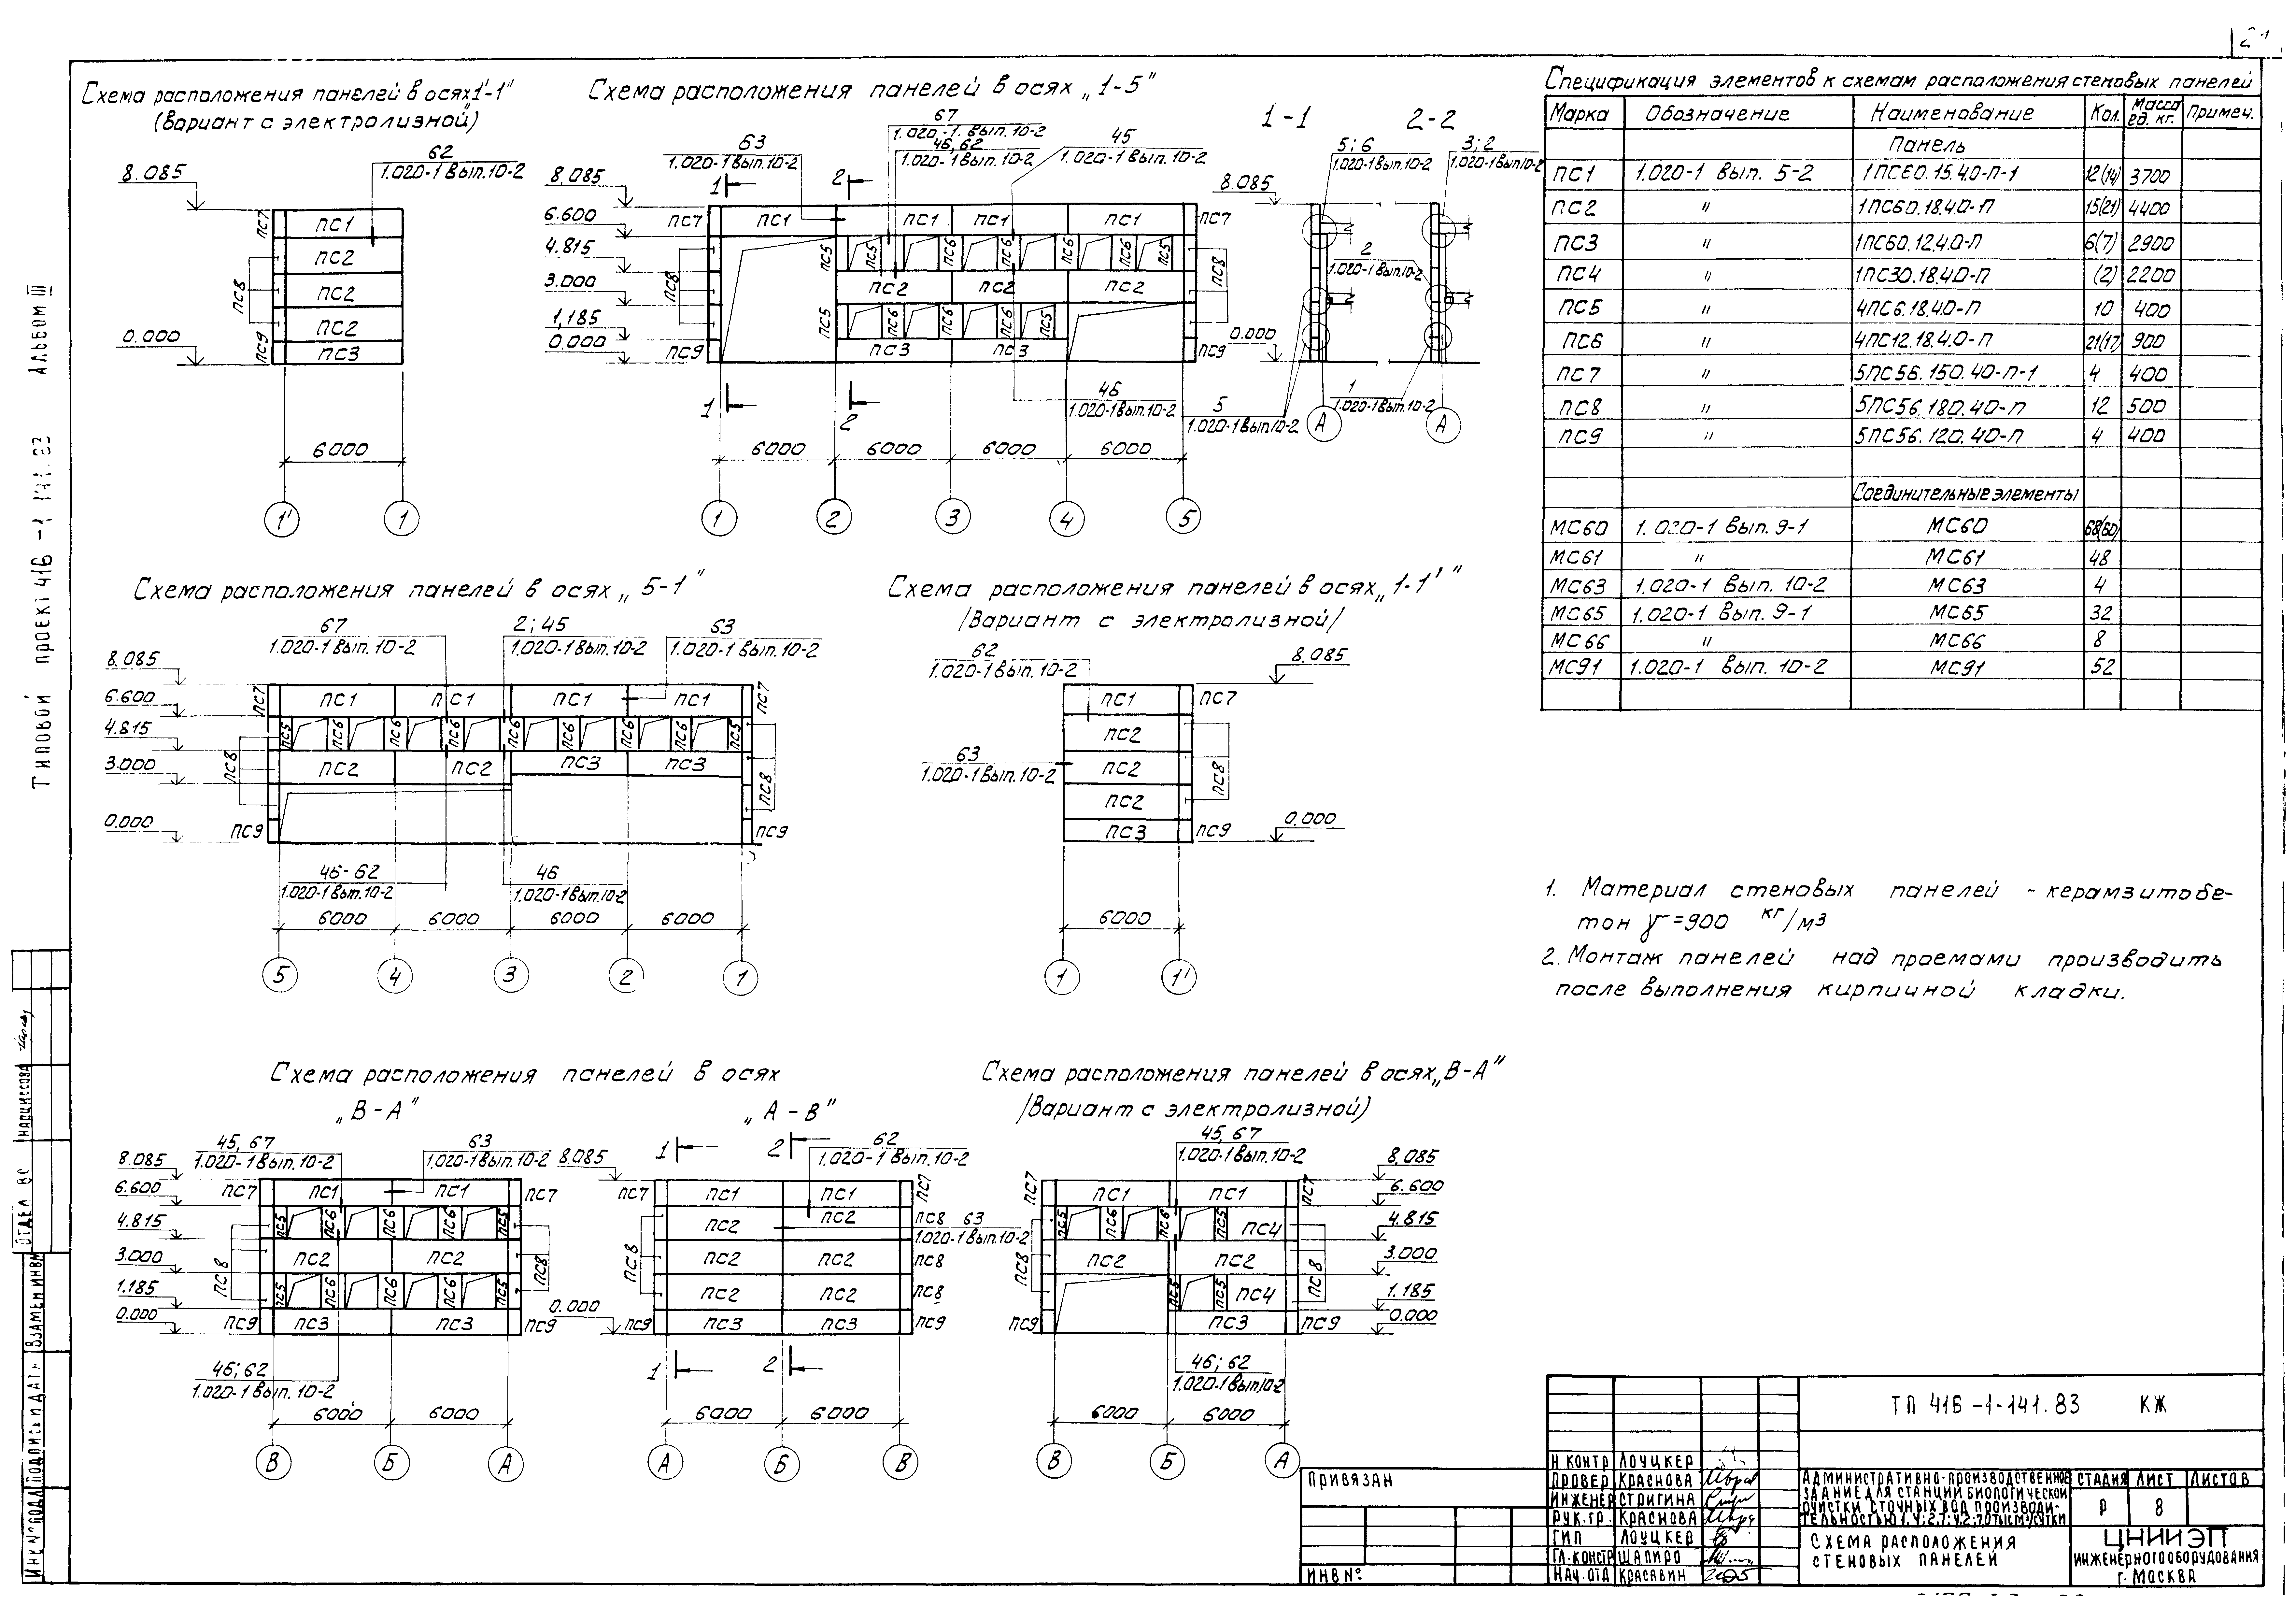 Схема расположения панелей в осях 1'-1"
(вариант с электролизной)
62
1.020-1 вып. 10-2
8.085
0.000
ПС7
ПС8
ПС9
ПС1
ПС2
ПС2
ПС2
ПС3
6000
1'
1
Схема расположения панелей в осях „1-5"
63
1.020-1 вып. 10-2
67
1.020-1. вып. 10-2
46, 62
1.020-1 вып. 10-2
45
1.020-1 вып. 10-2
8.085
6.600
4.815
3.000
1,185
0.000
1
2
ПС7
ПС1
ПС1
ПС1
ПС1
ПС7
ПС8
ПС5
ПС5
ПС6
ПС6
ПС6
ПС6
ПС6
ПС5
ПС8
ПС2
ПС2
ПС2
ПС5
ПС6
ПС6
ПС6
ПС5
ПС9
ПС3
ПС3
ПС9
46
1.020-1 вып. 10-2
1
2
6000
6000
6000
6000
1
2
3
4
5
1-1
2-2
5; 6
1.020-1 вып. 10-2
3; 2
1.020-1 вып 10-2
8.085
2
1.020-1 вып. 10-2
0.000
1
1.020-1 вып. 10-2
5
1.020-1 вып 10-2
А
А
Спецификация элементов к схемам расположения стеновых панелей
Марка Обозначение Наименование Кол. Масса ед. кг. Примеч.
Панель
ПС1 1.020-1 вып. 5-2 1ПС60.15.4.0-П-1 12(14) 3700
ПС2 " 1ПС60.18.4.0-П 15(21) 4400
ПС3 " 1ПС60.12.4.0-П 6(7) 2900
ПС4 " 1ПС30.18.4.0-П (2) 2200
ПС5 " 4ПС6.18.4.0-П 10 400
ПС6 " 4ПС12.18.4.0-П 21(17) 900
ПС7 " 5ПС56.150.40-П-1 4 400
ПС8 " 5ПС56.180.40-П 12 500
ПС9 " 5ПС56.120.40-П 4 400
Соединительные элементы
МС60 1.020-1 вып. 9-1 МС60 68(60)
МС61 " МС61 48
МС63 1.020-1 вып. 10-2 МС63 4
МС65 1.020-1 вып. 9-1 МС65 32
МС66 " МС66 8
МС91 1.020-1 вып. 10-2 МС91 52
Схема расположения панелей в осях „5-1"
67
1.020-1 вып. 10-2
2; 45
1.020-1 вып. 10-2
63
1.020-1 вып. 10-2
8.085
6.600
4.815
3.000
0.000
ПС7
ПС1
ПС1
ПС1
ПС1
ПС7
ПС8
ПС5
ПС6
ПС6
ПС6
ПС6
ПС6
ПС6
ПС6
ПС5
ПС8
ПС2
ПС2
ПС3
ПС3
ПС9
ПС9
46-62
1.020-1 вып. 10-2
46
1.020-1 вып. 10-2
6000
6000
6000
6000
5
4
3
2
1
Схема расположения панелей в осях „1-1'"
/Вариант с электролизной/
62
1.020-1 вып. 10-2
8.085
63
1.020-1 вып. 10-2
ПС1
ПС2
ПС2
ПС2
ПС3
ПС7
ПС8
ПС9
0.000
6000
1
1'
1. Материал стеновых панелей - керамзитобе-
тон γ=900 кг/м3
2. Монтаж панелей над проемами производить
после выполнения кирпичной кладки.
Схема расположения панелей в осях
„В-А"
„А-В"
45, 67
1.020-1 вып. 10-2
63
1.020-1 вып. 10-2
8.085
6.600
4.815
3.000
1.185
0.000
ПС7
ПС1
ПС1
ПС7
ПС8
ПС5
ПС6
ПС6
ПС6
ПС5
ПС8
ПС2
ПС2
ПС5
ПС6
ПС6
ПС6
ПС5
ПС9
ПС3
ПС3
ПС9
46; 62
1.020-1 вып. 10-2
6000
6000
В
Б
А
1
2
62
1.020-1 вып. 10-2
8.085
0.000
ПС7
ПС1
ПС1
ПС7
ПС8
ПС2
ПС2
ПС8
63
1.020-1 вып. 10-2
ПС2
ПС2
ПС8
ПС2
ПС2
ПС8
ПС9
ПС3
ПС3
ПС9
1
2
6000
6000
А
Б
В
Схема расположения панелей в осях „В-А"
/Вариант с электролизной)
45, 67
1.020-1 вып. 10-2
8.085
6.600
4.815
3.000
1.185
0.000
ПС7
ПС1
ПС1
ПС7
ПС8
ПС5
ПС6
ПС6
ПС5
ПС4
ПС8
ПС2
ПС2
ПС5
ПС5
ПС4
ПС9
ПС3
ПС9
46; 62
1.020-1 вып 10-2
6000
6000
В
Б
А
ТП 416-1-141.83 КЖ
Н контр Лоуцкер
Провер Краснова
Инженер Стригина
Рук.гр. Краснова
ГИП Лоуцкер
Гл.констр Шапиро
Нач.отд Красавин
Административно-производственное
здание для станций биологической
очистки сточных вод производи-
тельностью 1,4; 2,7; 4,2; 7,0 тыс м3/сутки
Стадия Лист Листов
Р 8
Схема расположения
стеновых панелей
ЦНИИЭП
инженерного оборудования
г. Москва
Привязан
Инв №
Альбом III
Типовой проект 416-1-141.83
Отдел ВС Нарциссова
Взамен инв№
Подпись и дата
Инв № подл